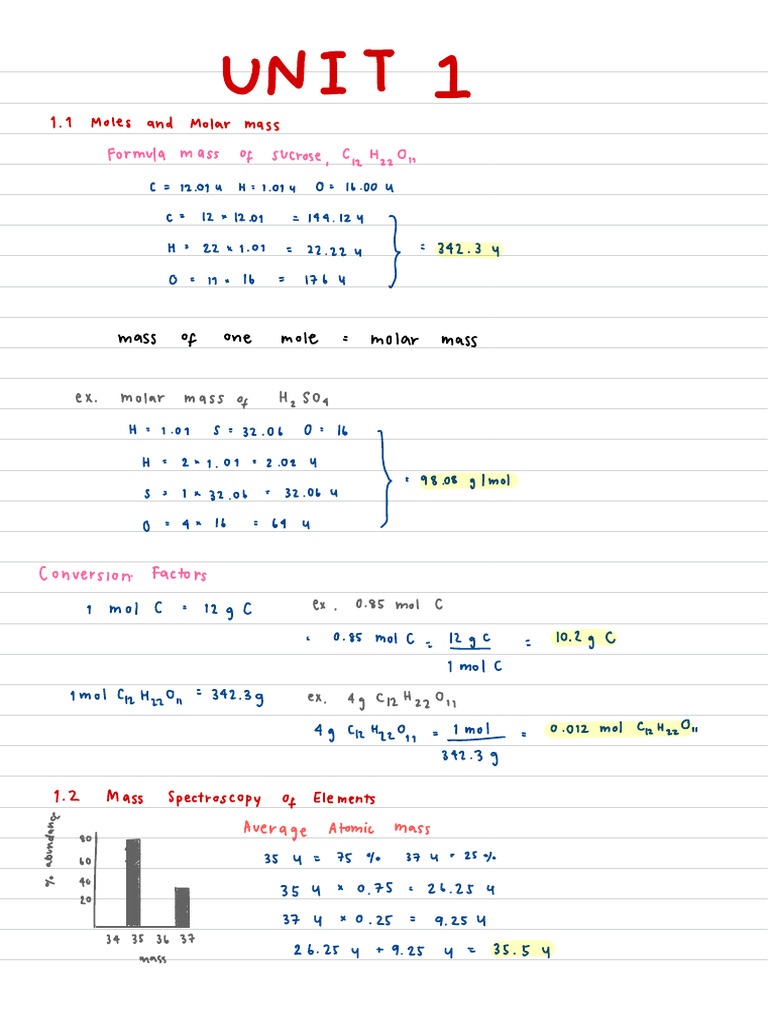 UNIT 1
1.1 Moles and Molar mass
Formula mass of sucrose, C₁₂H₂₂O₁₁
C = 12.01 u H = 1.01 u O = 16.00 u
C = 12 × 12.01 = 144.12 u
H = 22 × 1.01 = 22.22 u = 342.3 u
O = 11 × 16 = 176 u
mass of one mole = molar mass
ex. molar mass of H₂SO₄
H = 1.01 S = 32.06 O = 16
H = 2 × 1.01 = 2.02 u
S = 1 × 32.06 = 32.06 u = 98.08 g/mol
O = 4 × 16 = 64 u
Conversion Factors
1 mol C = 12 g C ex. 0.85 mol C
= 0.85 mol C = 12 g C = 10.2 g C
1 mol C
1 mol C₁₂H₂₂O₁₁ = 342.3 g ex. 4g C₁₂H₂₂O₁₁
4g C₁₂H₂₂O₁₁ = 1 mol = 0.012 mol C₁₂H₂₂O₁₁
342.3 g
1.2 Mass Spectroscopy of Elements
Average Atomic mass
% abundance
80
60
40
20
34 35 36 37
mass
35 u = 75 % 37 u = 25 %
35 u × 0.75 = 26.25 u
37 u × 0.25 = 9.25 u
26.25 u + 9.25 u = 35.5 u